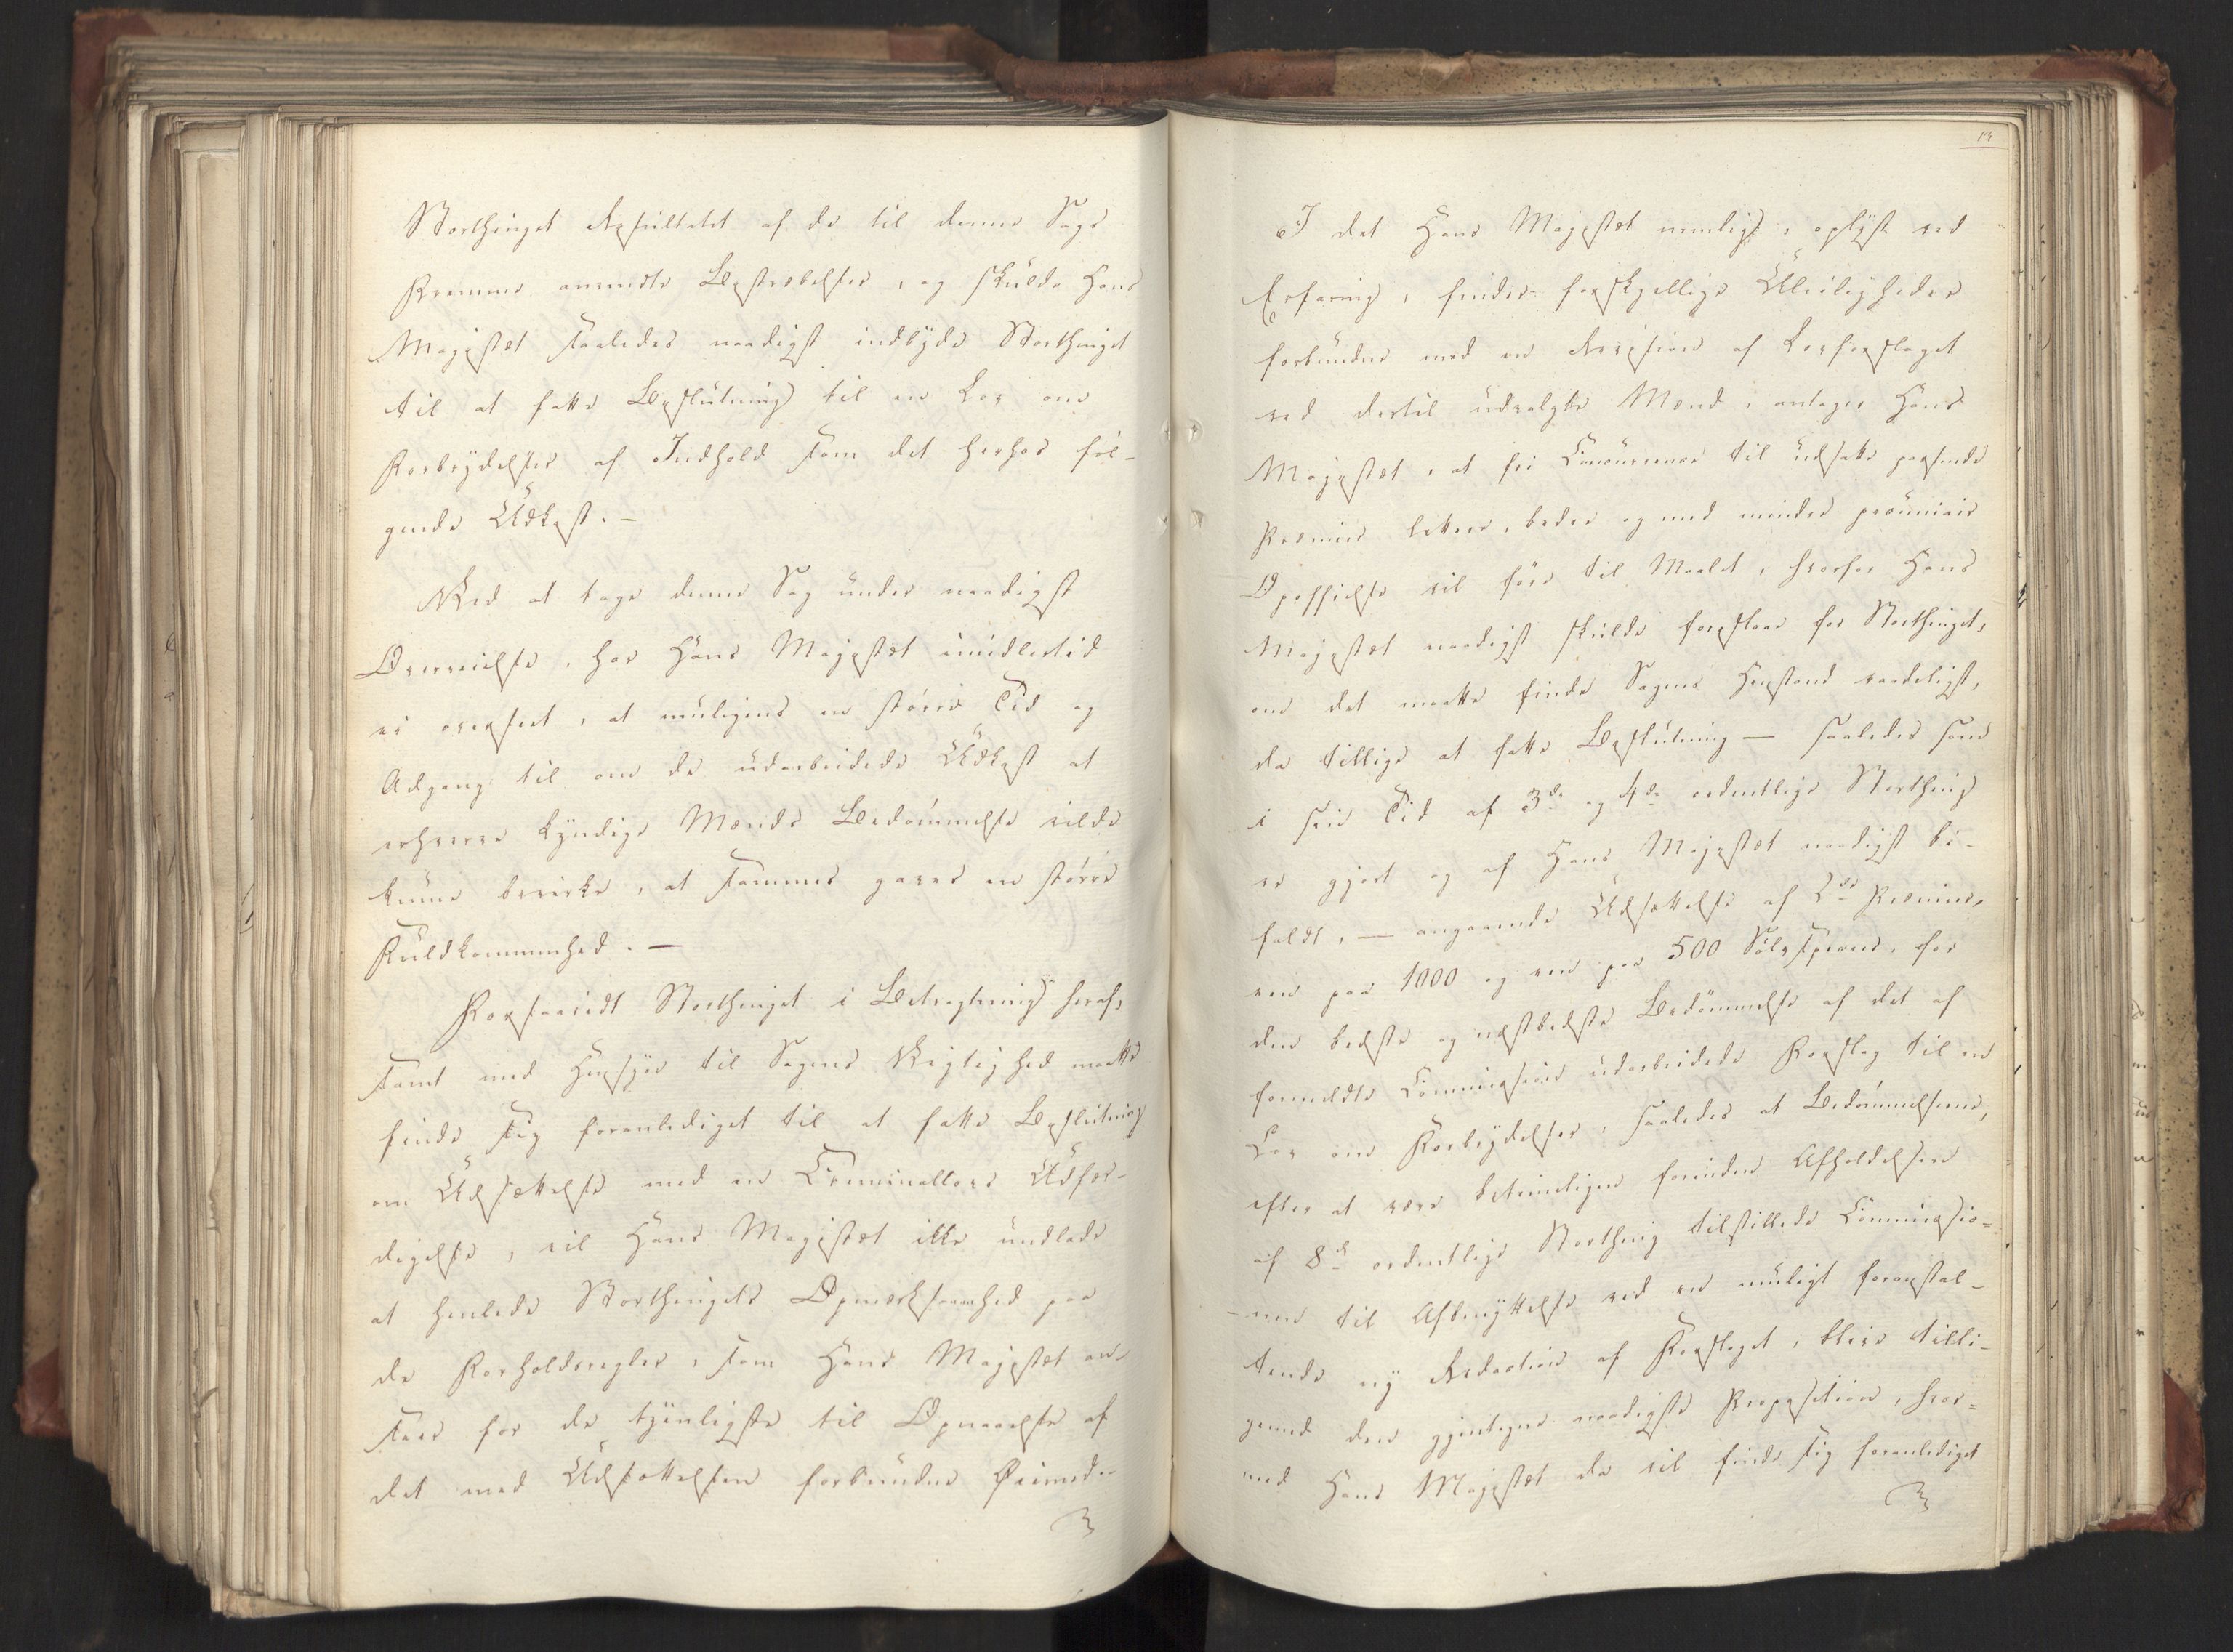 Storthinget Resultatet af de til denne Sags
Fremme anvendte Bestræbelser, og skulde Hans
Majestæt saaledes naadigst indbyde Storthinget
til at fatte Beslutning til en Lov om
Forbrydelser af Indhold som det herhos føl-
gende Udkast. —
Ved at tage denne Sag under naadigst
Overveielse, har Hans Majestæt imidlertid
ei overseet, at muligens en større Tid og
Adgang til om de udarbeidede Udkast at
erhverve kyndige Mænds Bedømmelse vilde
kunne bevirke, at sammes gaves en større
Fuldkommenhed. —
Forsaavidt Storthinget i Betragtning heraf,
samt med Hensyn til Sagens Vigtighed maatte
finde sig foranlediget til at fatte Beslutning
om Udsættelse med en Criminallovs Udfær-
digelse, vil Hans Majestæt ikke undlade
at henlede Storthingets Opmærksomhed paa
de Forholdsregler, som Hans Majestæt an-
seer for de tjenligste til Opnaaelse af
det med Udsættelsen forbundne Øiemed.
13
I det Hans Majestæt nemlig, oplyst ved
Erfaring, finder forskjellige Uleiligheder
forbundne med en Revision af Lovforslaget
ved dertil udvalgte Mænd, antager Hans
Majestæt, at fri Concurrence til udsatte passende
Præmier lettere, bedre og med mindre pecuniair
Opoffrelse vil føre til Maalet, hvorfor Hans
Majestæt naadigst skulde foreslaae for Storthinget,
om det maatte finde Sagens Henstand raadeligst,
da tillige at fatte Beslutning — saaledes som
i sin Tid af 3de og 4de ordentlige Storthing
er gjort og af Hans Majestæt naadigst bi-
faldt, — angaaende Udsættelse af 2de Præmier,
een paa 1000 og een paa 500 Sølvspecies, for
den bedste og næstbedste Bedømmelse af det af
formeldte Commission udarbeidede Forslag til en
Lov om Forbrydelser, saaledes at Bedømmelserne,
efter at være betimeligen forinden Afholdelsen
af 8de ordentlige Storthing tilstillede Commissio-
-nen til Afbenyttelse ved en muligt foranstal-
tende ny Redaction af Forslaget, blive tilli-
gemed den gjentagne naadigste Proposition, hvor-
med Hans Majestæt da vil finde sig foranlediget